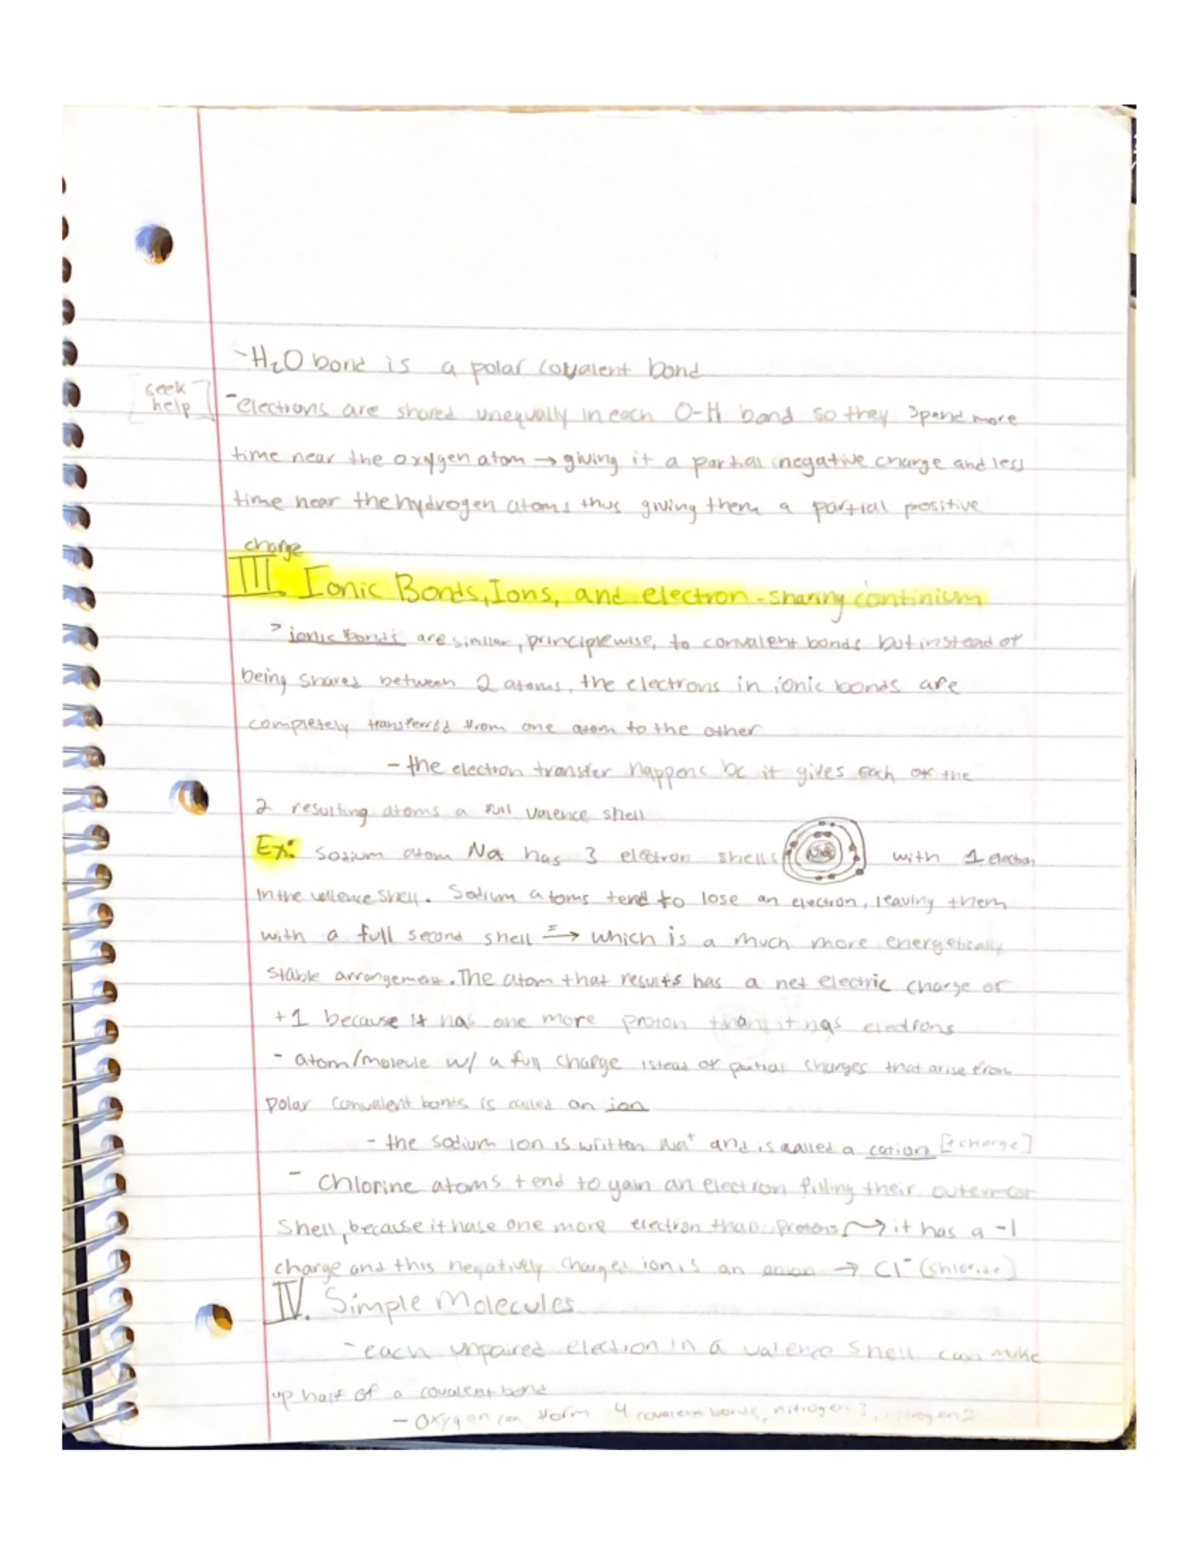 -H₂O bond is a polar covalent bond
[seek help]
-electrons are shared unequally in each O-H bond so they spend more
time near the oxygen atom → giving it a partial negative charge and less
time near the hydrogen atoms thus giving them a partial positive
charge
III. Ionic Bonds, Ions, and electron-sharing continium
> ionic bonds are similar, principlewise, to convalent bonds but instead of
being shared between 2 atoms, the electrons in ionic bonds are
completely transferred from one atom to the other
- the electron transfer happens bc it gives each of the
2 resulting atoms a full valence shell
Ex: Sodium atom Na has 3 electron shells Na with 1 electron
in the vallence shell. Sodium atoms tend to lose an electron, leaving them
with a full second shell → which is a much more energetically
stable arrangement. The atom that results has a net electric charge of
+1 because it has one more proton than it has electrons
- atom/molecule w/ a full charge istead of partial charges that arise from
polar convalent bonds is called an ion
- the sodium ion is written Na⁺ and is called a cation [+ charge]
- Chlorine atoms tend to gain an electron filling their outermost
shell, because it has one more electron than protons → it has a -1
charge and this negatively charged ion is an anion → Cl⁻ (chloride)
IV. Simple Molecules
- each unpaired electron in a valence shell can make
up half of a covalent bond
- oxygen can form 4 covalent bonds, nitrogen 3, 2